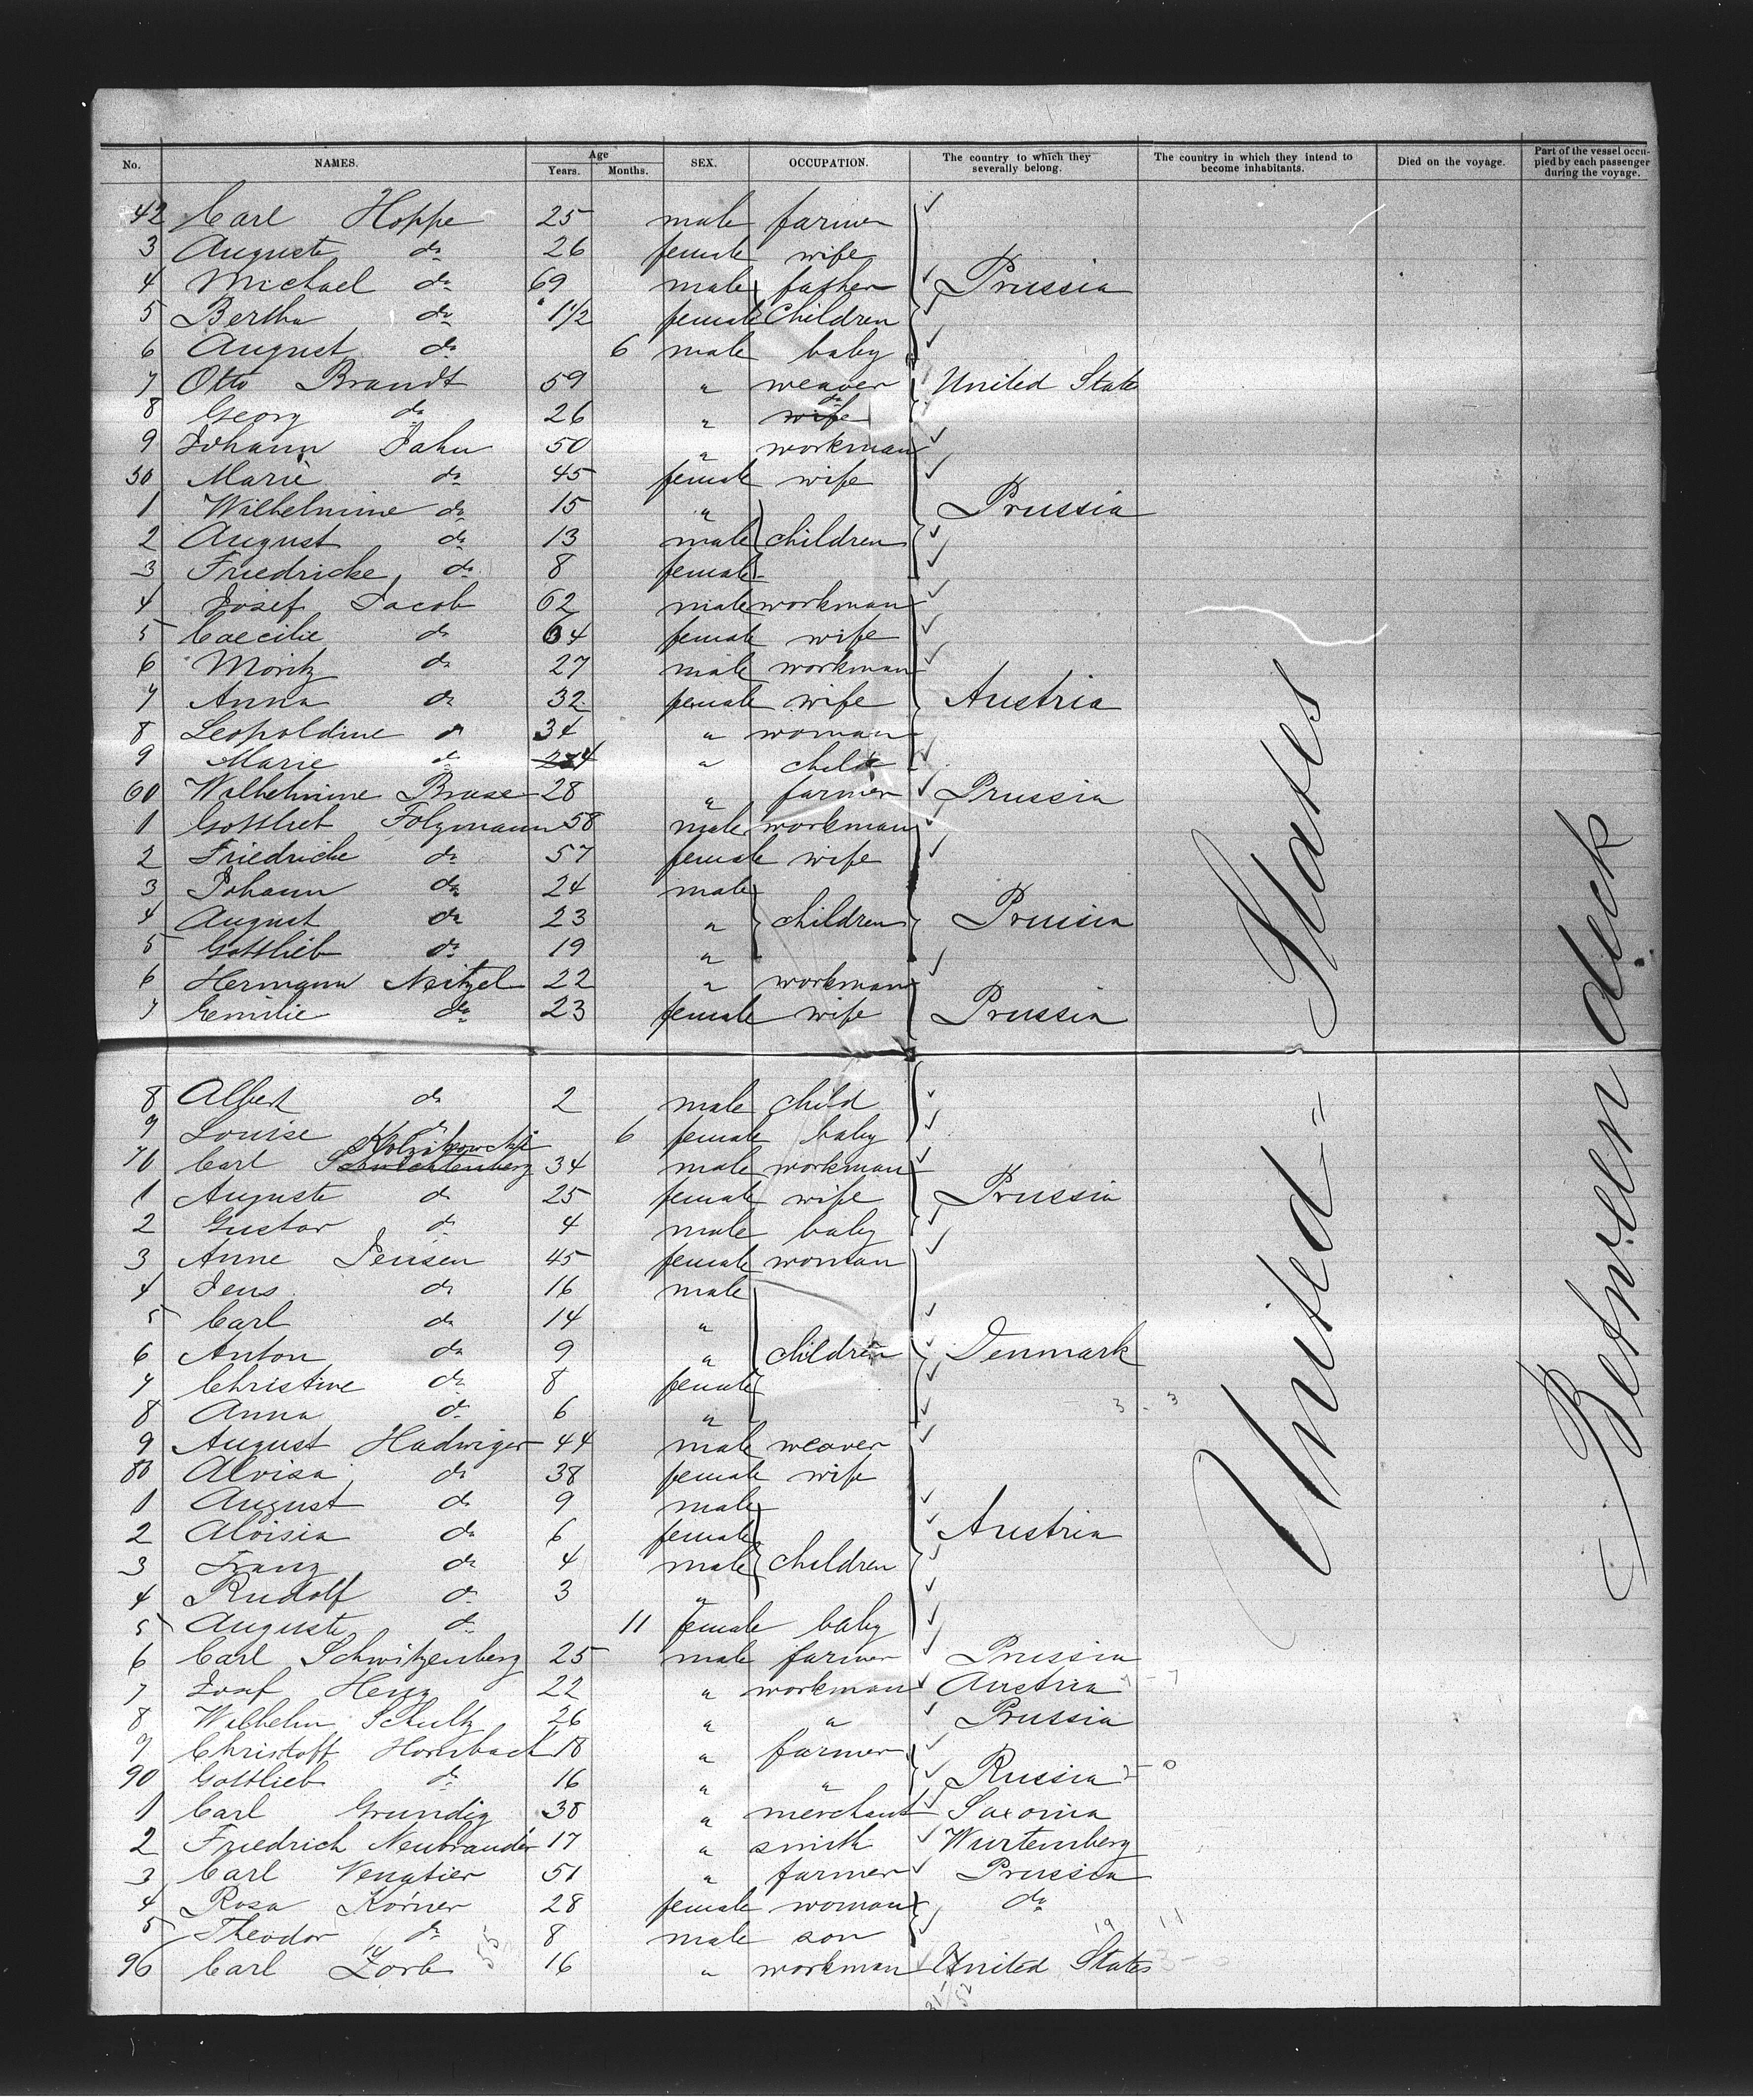 No. NAMES. Age Years. Months. SEX. OCCUPATION. The country to which they severally belong. The country in which they intend to become inhabitants. Died on the voyage. Part of the vessel occupied by each passenger during the voyage.
42 Carl Hoppe 25 male farmer
3 Auguste do 26 female wife
4 Michael do 69 male father Prussia
5 Bertha do 1 1/2 female Children
6 August do 6 male baby
7 Otto Brandt 59 " weaver United States
8 Georg do 26 " wife do
9 Johann Jahn 50 " workman
50 Marie do 45 female wife
1 Wilhelmine do 15 " Prussia
2 August do 13 male children
3 Friedricke do 8 female
4 Josef Jacob 62 male workman
5 Caecilie do 64 female wife
6 Moritz do 27 male workman
7 Anna do 32 female wife Austria
8 Leopoldine do 34 " woman
9 Marie do 4 " child
60 Wilhelmine Brase 28 " farmer Prussia
1 Gottlieb Folzmann 58 male workman
2 Friedricke do 57 female wife
3 Johann do 24 male
4 August do 23 " children Prussia
5 Gottlieb do 19 "
6 Hermann Neitzel 22 " workman
7 Emilie do 23 female wife Prussia
8 Albert do 2 male child
9 Louise do 6 female baby
70 Carl 34 male workman
1 Auguste do 25 female wife Prussia
2 Gustav do 4 male baby
3 Anne Jensen 45 female woman
4 Jens do 16 male
5 Carl do 14 "
6 Anton do 9 " children Denmark
7 Christine do 8 female
8 Anna do 6 "
9 August Hadwiger 44 male weaver
80 Aloisa do 38 female wife
1 August do 9 male
2 Aloisia do 6 female Austria
3 Franz do 4 male children
4 Rudolf do 3 "
5 Auguste do 11 female baby
6 Carl Schwitzenberg 25 male farmer Prussia
7 Josef 22 " workman Austria
8 Wilhelm Schultz 26 " " Prussia
9 Christoff Hornbach 18 " farmer
90 Gottlieb do 16 " " Russia
1 Carl Grundig 38 " merchant Saxonia
2 Friedrich Neubrander 17 " smith Wurtemberg
3 Carl Venatier 51 " farmer Prussia
4 Rosa Körner 28 female woman do
5 Theodor do 8 male son
96 Carl Zorb 16 " workman United States
United = States
Between deck